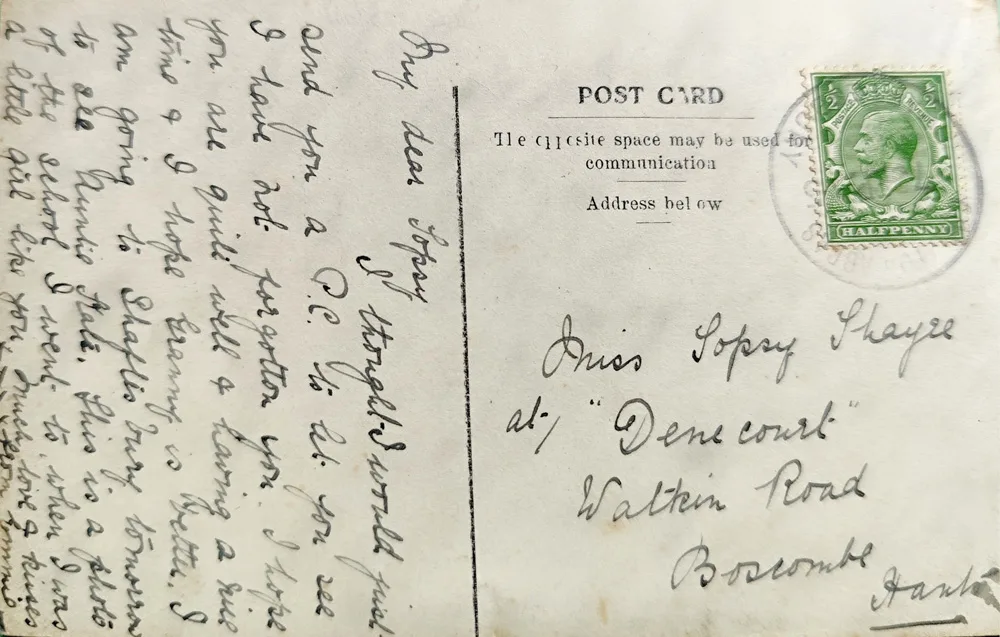 My dear Topsy
I thought I would just
send you a P.C. to let you see
I have not forgotten you. I hope
you are quite well & having a nice
time & I hope Granny is better. I
am going to Shaftisbury tomorrow
to see Auntie Kate. This is a photo
of the school I went to, when I was
a little girl like you. Much love & kisses
from
POST CARD
The opposite space may be used for
communication
Address below
½ ½
HALFPENNY
Miss Topsy Shayre
at / "Denecourt"
Watkin Road
Boscombe
Hants